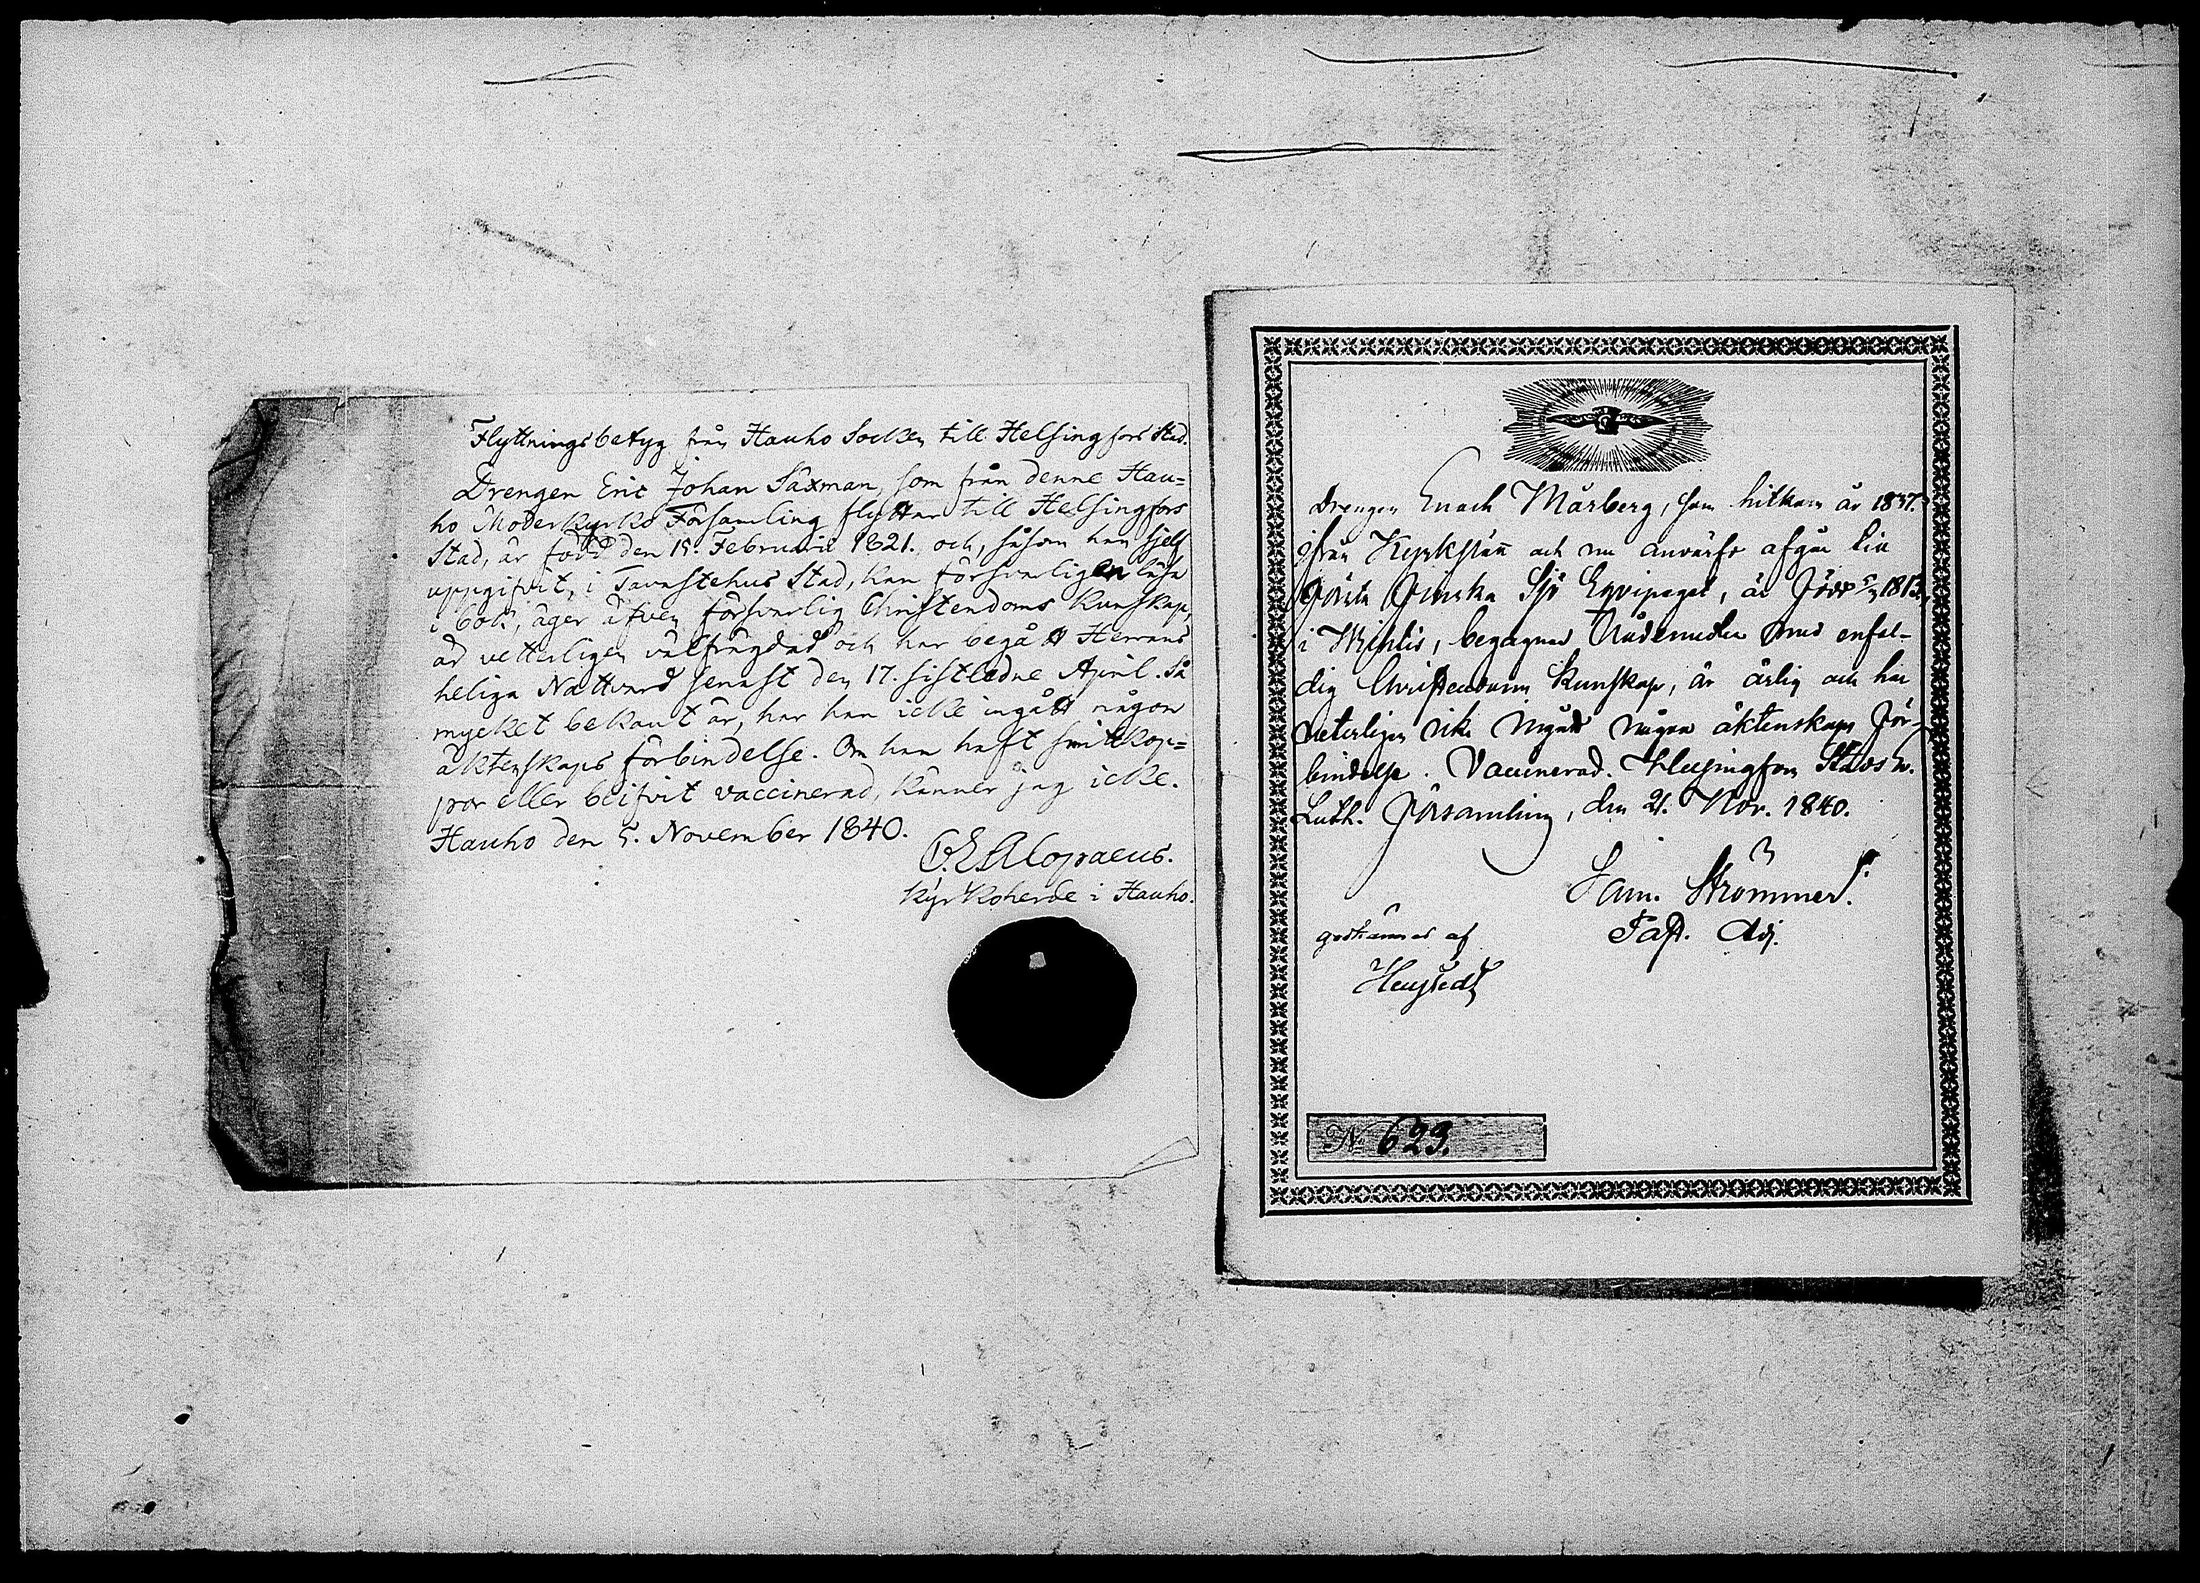 Flyttningsbetyg från Hauho Socken till Helsingfors Stad.
Drengen Eric Johan Saxman, som från denne Hau=
ho Moderkyrko Församling flyttar till Helsingfors
Stad, är född den 15. Februarii 1821. och, såsom han sjelf
uppgifvit, i Tavastehus Stad, kan försvarligen läsa
i bok, äger äfven försvarlig Christendoms Kunskap,
är vetterligen välfrägdad och har begått Herrans
heliga Nattvard senast den 17. sistledne April. Så
mycket bekant är, har han icke ingått någon
äktenskaps förbindelse. Om han haft smittkop=
por eller blifvit vaccinerad, känner jag icke.
Hauho den 5. November 1840.
Alopaeus.
Kyrkoherde i Hauho.
Drengen Enoch Mårberg, som hitkom år 1837.
ifrån Kyrkslätt och nu ärnar afgå till
Första Finska Sjö Equipaget, är född 1813.
i Wichtis, begagnar Nådemedlen med enfal-
dig Christendoms Kunskap, är ärlig och har
veterligen icke ingått någon äktenskaps för-
bindelse. Vaccinerad. Helsingfors Stads
Luth. Församling, den 21. Nov. 1840.
Sam. Strömmer.
Past. Adj.
godkännes af
No 623.